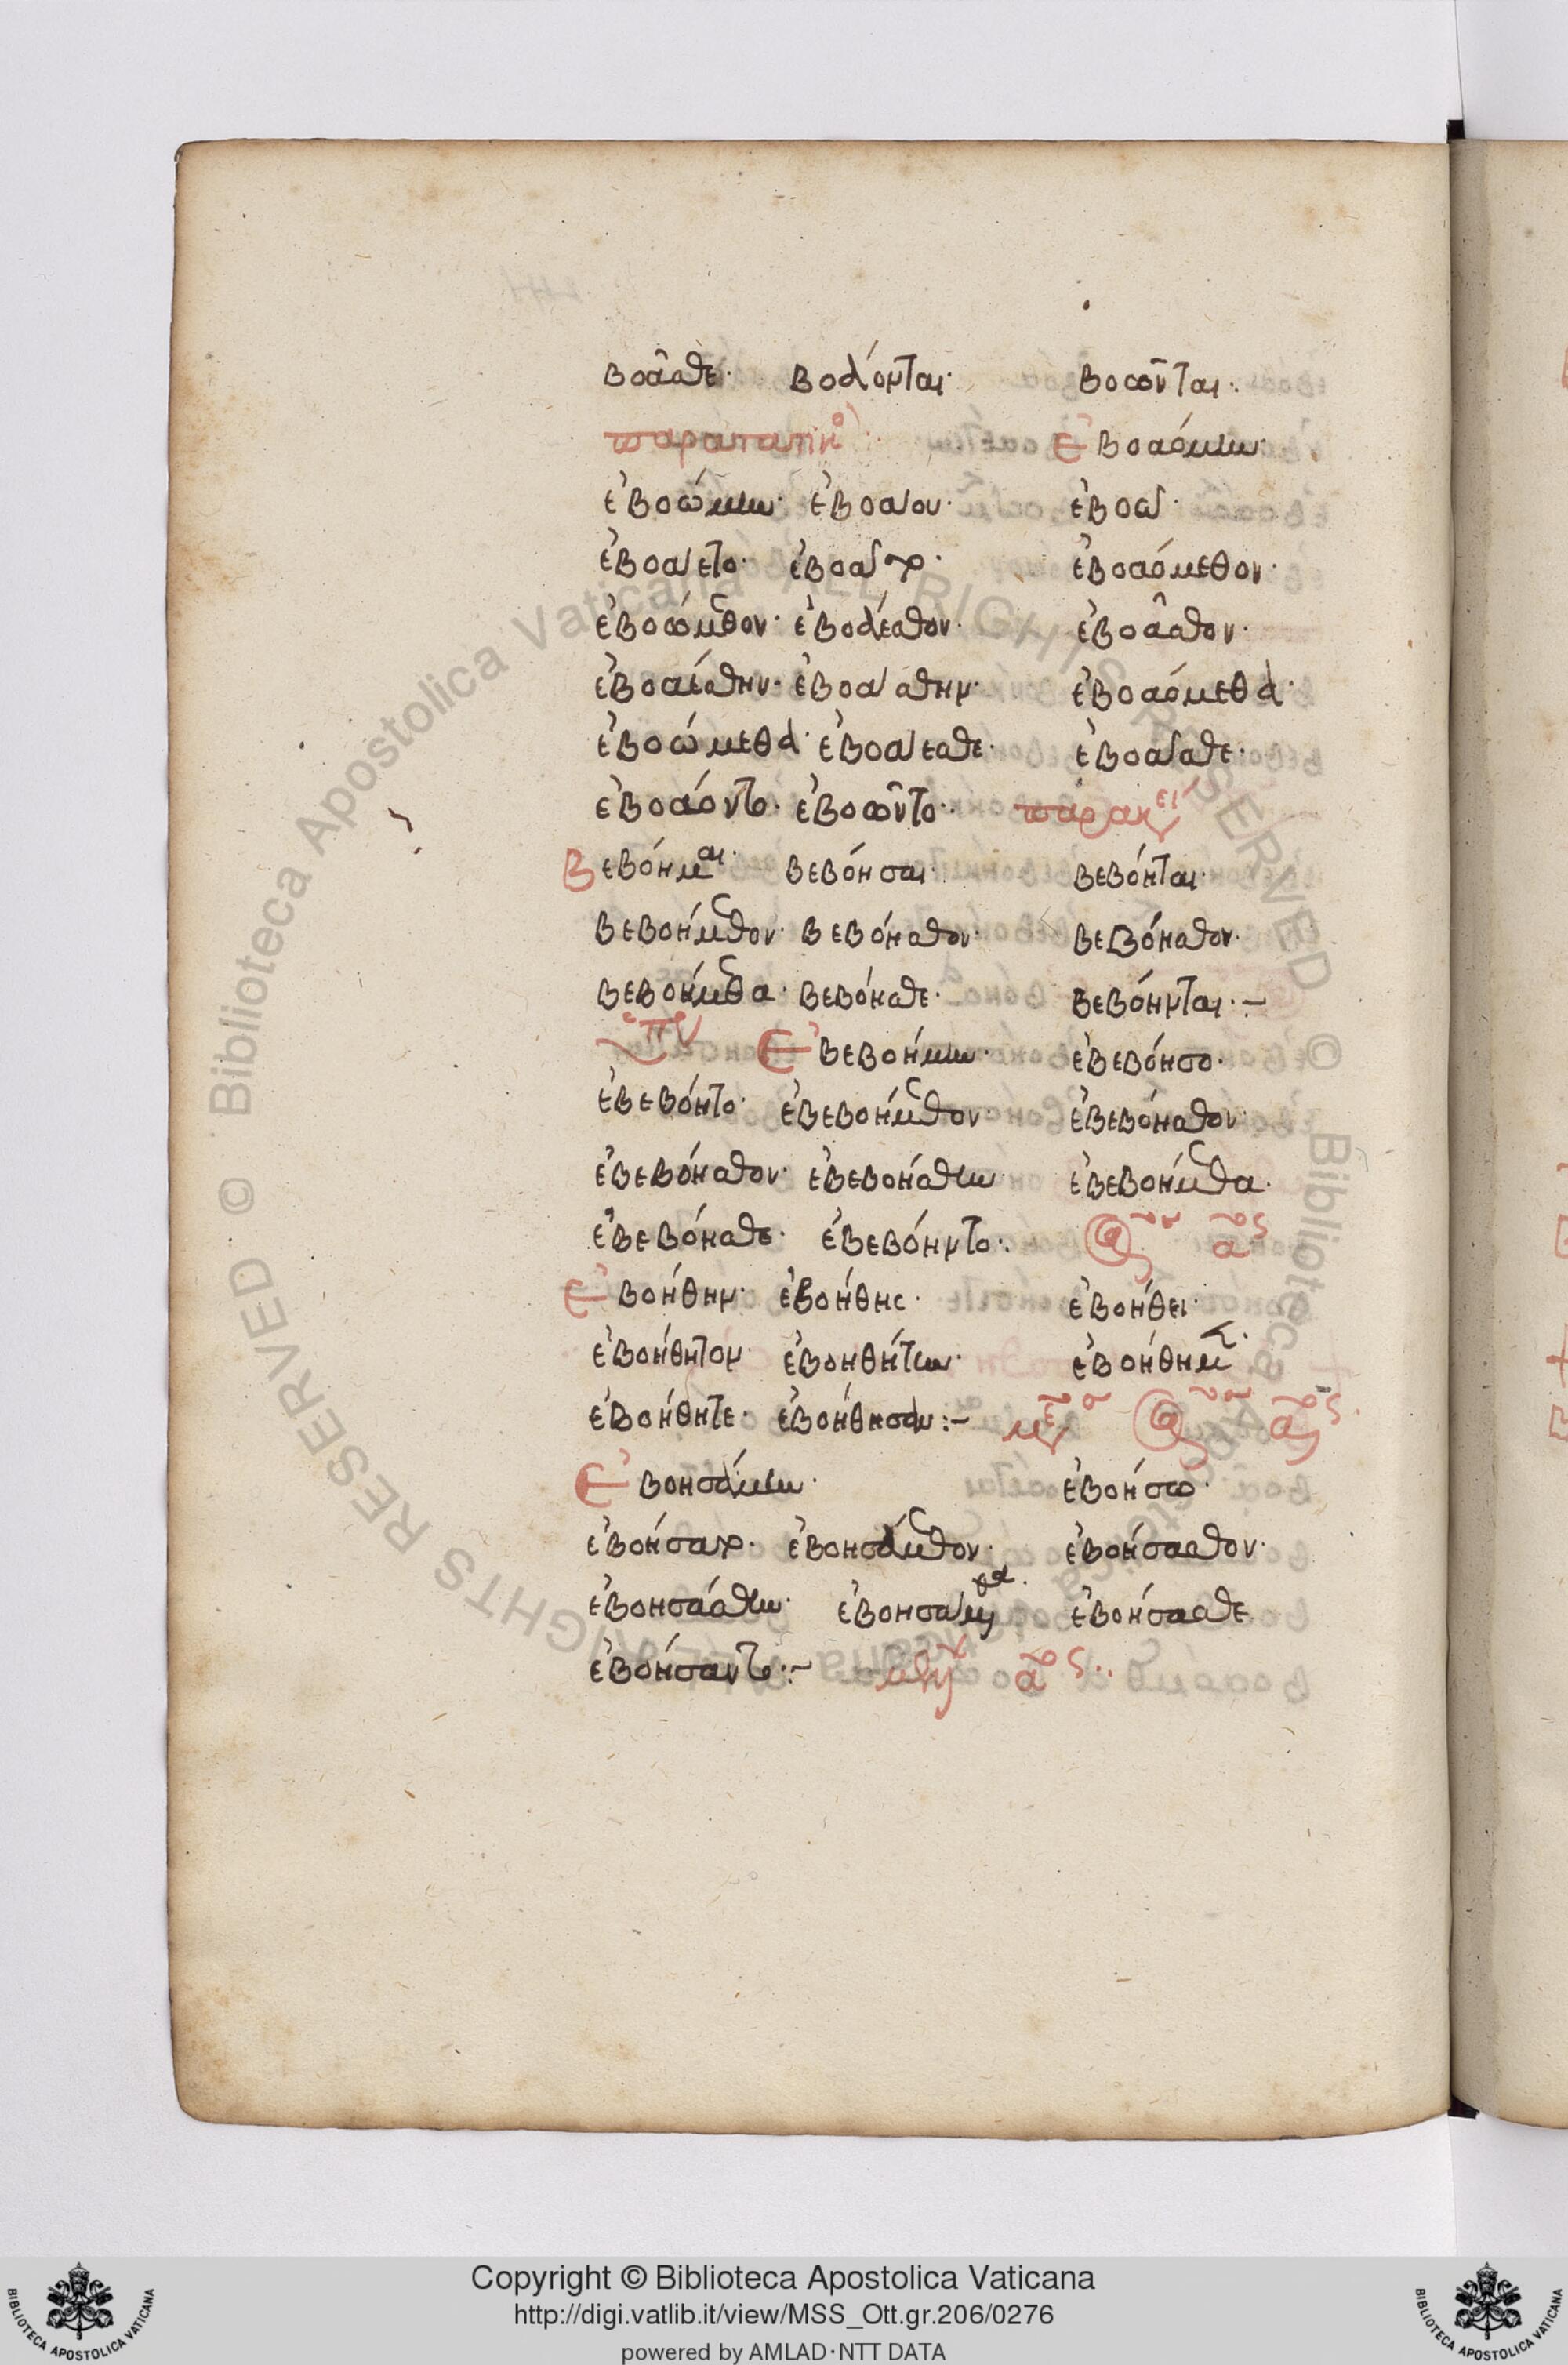 βοᾶσθε· βοάονται· βοῶνται:
παρατατικο) · Ἐβοαόμην·
ἐβοώμην· ἐβοάου· ἐβοῶ·
ἐβοάετο· ἐβοᾶτο· ἐβοαόμεθον·
ἐβοώμεθον· ἐβοάεσθον· ἐβοᾶσθον·
ἐβοαέσθην· ἐβοάσθην· ἐβοαόμεθα·
ἐβοώμεθα· ἐβοάεσθε· ἐβοᾶσθε·
ἐβοάοντο· ἐβοῶντο·· παρακει
Βεβόημαι· βεβόησαι· βεβόηται·
βεβοήμεθον· βεβόησθον· βεβόησθον·
βεβοήμεθα· βεβόησθε· βεβόηνται·–
Ἐβεβοήμην· ἐβεβόησο·
ἐβεβόητο· ἐβεβοήμεθον· ἐβεβόησθον·
ἐβεβόησθον· ἐβεβοήσθην· ἐβεβοήμεθα·
ἐβεβόησθε· ἐβεβόηντο:· α
Ἐβοήθην· ἐβοήθης· ἐβοήθει·
ἐβοήθητον ἐβοηθήτην· ἐβοήθημεν·
ἐβοήθητε· ἐβοήθησαν:– με α
Ἐβοησάμην· ἐβοήσω·
ἐβοήσατο· ἐβοησάμεθον· ἐβοήσασθον·
ἐβοησάσθην· ἐβοησάμεθα· ἐβοήσασθε
ἐβοήσαντο:– α
© Biblioteca Apostolica Vaticana ALL RIGHTS RESERVED © Biblioteca Apostolica Vaticana ALL RIGHTS RESERVED
Copyright © Biblioteca Apostolica Vaticana
http://digi.vatlib.it/view/MSS_Ott.gr.206/0276
powered by AMLAD·NTT DATA
BIBLIOTECA APOSTOLICA VATICANA
BIBLIOTECA APOSTOLICA VATICANA